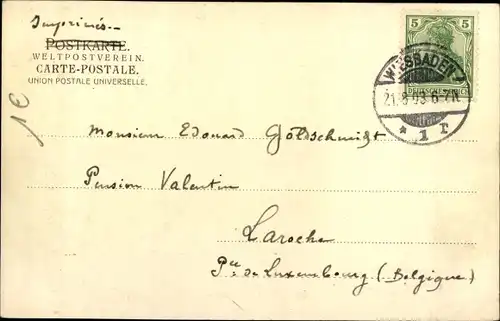 Imprimés.-
POSTKARTE.
WELTPOSTVEREIN.
CARTE-POSTALE.
UNION POSTALE UNIVERSELLE.
5 5
DEUTSCHES REICH
WIESBADEN
21.8.03.6-7N
* 1 r
1€
Monsieur Edouard Goldschmidt
Pension Valentin
Laroche
Pce de Luxembourg (Belgique)